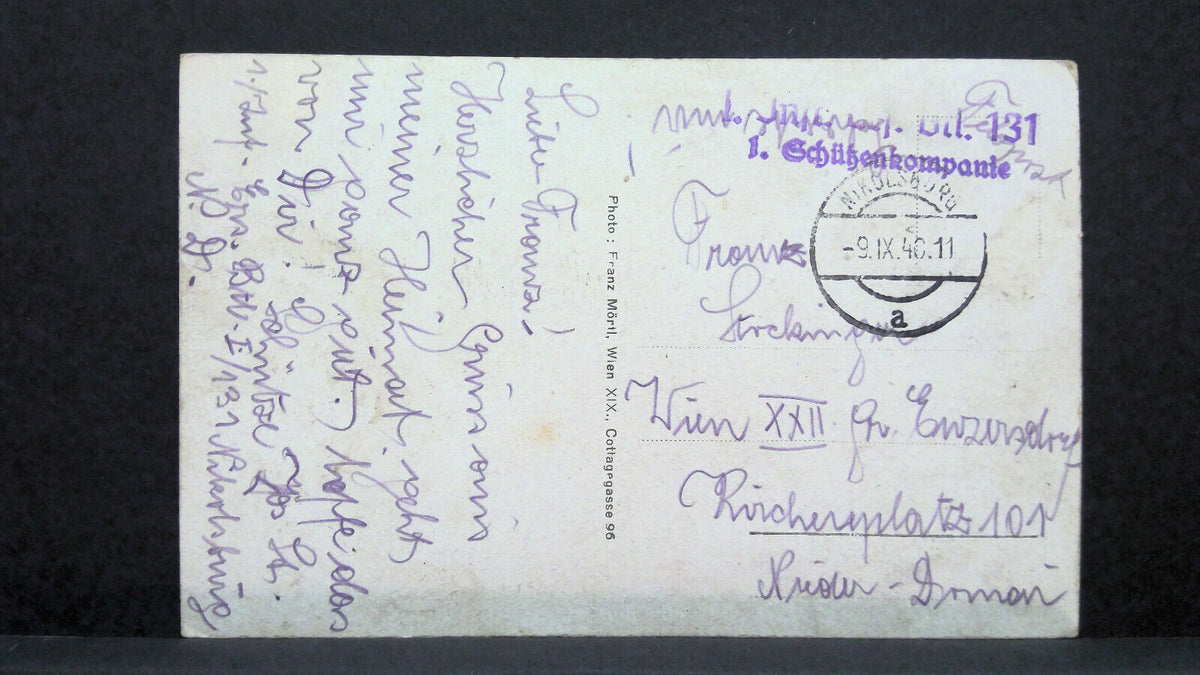 Liebe Franz!
Herzlichen Gruss aus
meiner Heimat. geht
mir sonst gut. hoffe das
von Dir!
Schütze
1./Inf. Ers. Btl. I/131 Nikolsburg
N. D.
Photo: Franz Mörtl, Wien XIX., Cottagegasse 96
131
1. Schützenkompanie
NIKOLSBURG
-9.IX.40.11
a
Franz
Stockinger
Wien XXII. Gr. Enzersdorf
Kirchenplatz 101
Nieder-Donau